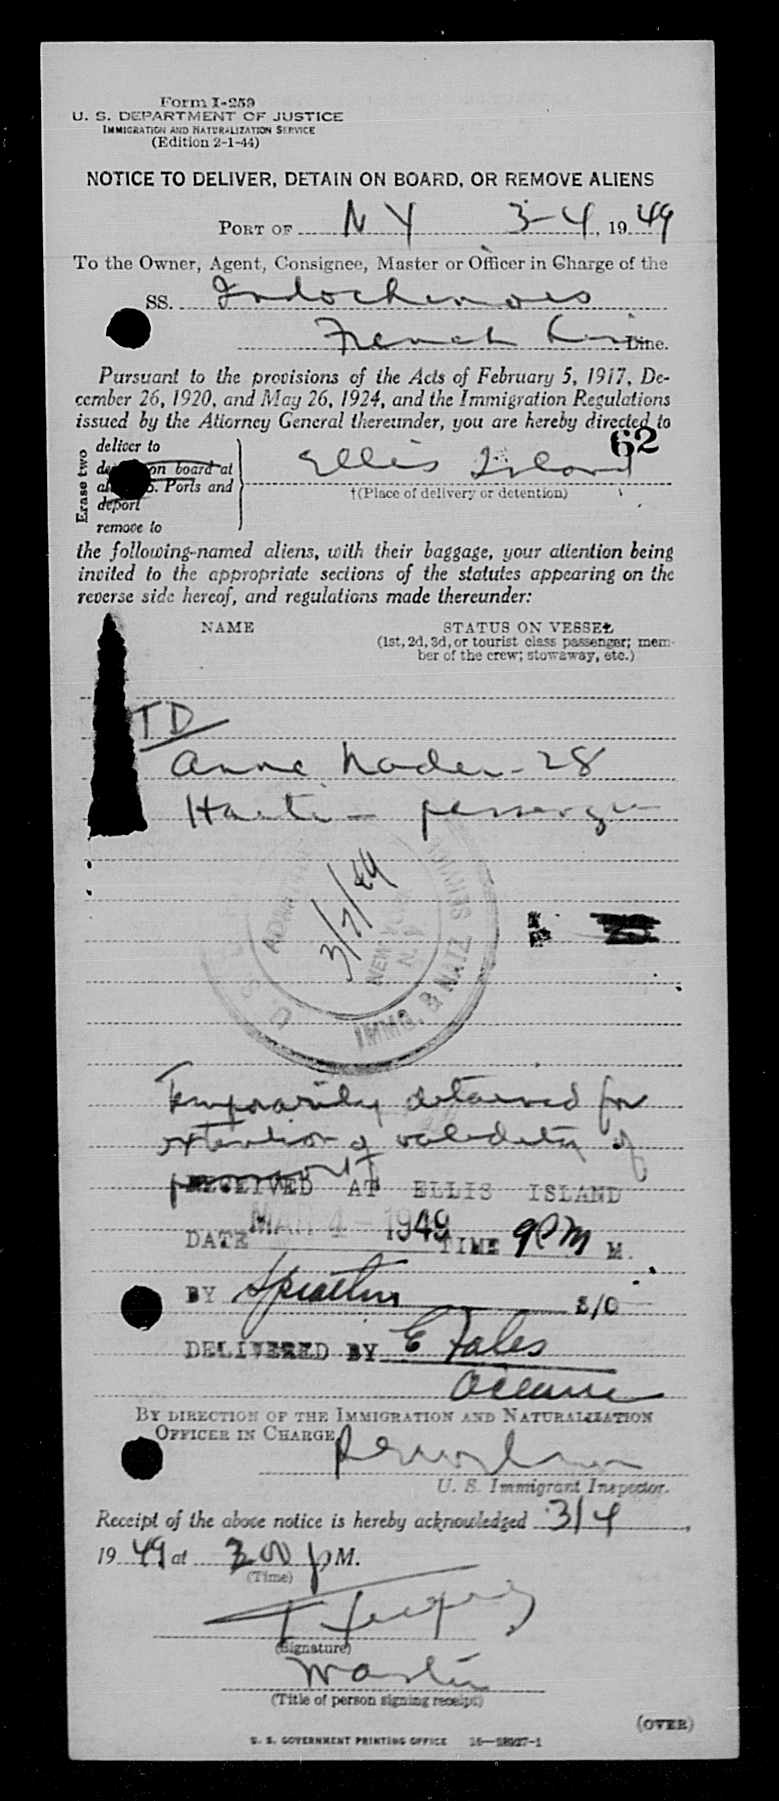 Form I-259
U. S. DEPARTMENT OF JUSTICE
IMMIGRATION AND NATURALIZATION SERVICE
(Edition 2-1-44)
NOTICE TO DELIVER, DETAIN ON BOARD, OR REMOVE ALIENS
PORT OF N Y 3-4, 1949
To the Owner, Agent, Consignee, Master or Officer in Charge of the
SS. Indochinois
French Line.
Pursuant to the provisions of the Acts of February 5, 1917, De-
cember 26, 1920, and May 26, 1924, and the Immigration Regulations
issued by the Attorney General thereunder, you are hereby directed to
62
Erase two
deliver to
on board at
Ports and
deport
remove to
Ellis Island
†(Place of delivery or detention)
the following-named aliens, with their baggage, your attention being
invited to the appropriate sections of the statutes appearing on the
reverse side hereof, and regulations made thereunder:
NAME STATUS ON VESSEL
(1st, 2d, 3d, or tourist class passenger; mem-
ber of the crew; stowaway, etc.)
TD
Anne Nader - 28
Haiti - passenger
3/7/49
NEW YORK
N. Y.
U. S. IMMIG. & NATZ. SERVICE
Temporarily detained for
extention of validity of
RECEIVED AT ELLIS ISLAND
DATE MAR 4 - 1949 TIME 9PM M.
BY S/O
DELIVERED BY E Fales
BY DIRECTION OF THE IMMIGRATION AND NATURALIZATION
OFFICER IN CHARGE
U. S. Immigrant Inspector.
Receipt of the above notice is hereby acknowledged 3/4,
1949 at 3 00 p M.
(Time)
(Signature)
Master
(Title of person signing receipt)
(OVER)
U. S. GOVERNMENT PRINTING OFFICE